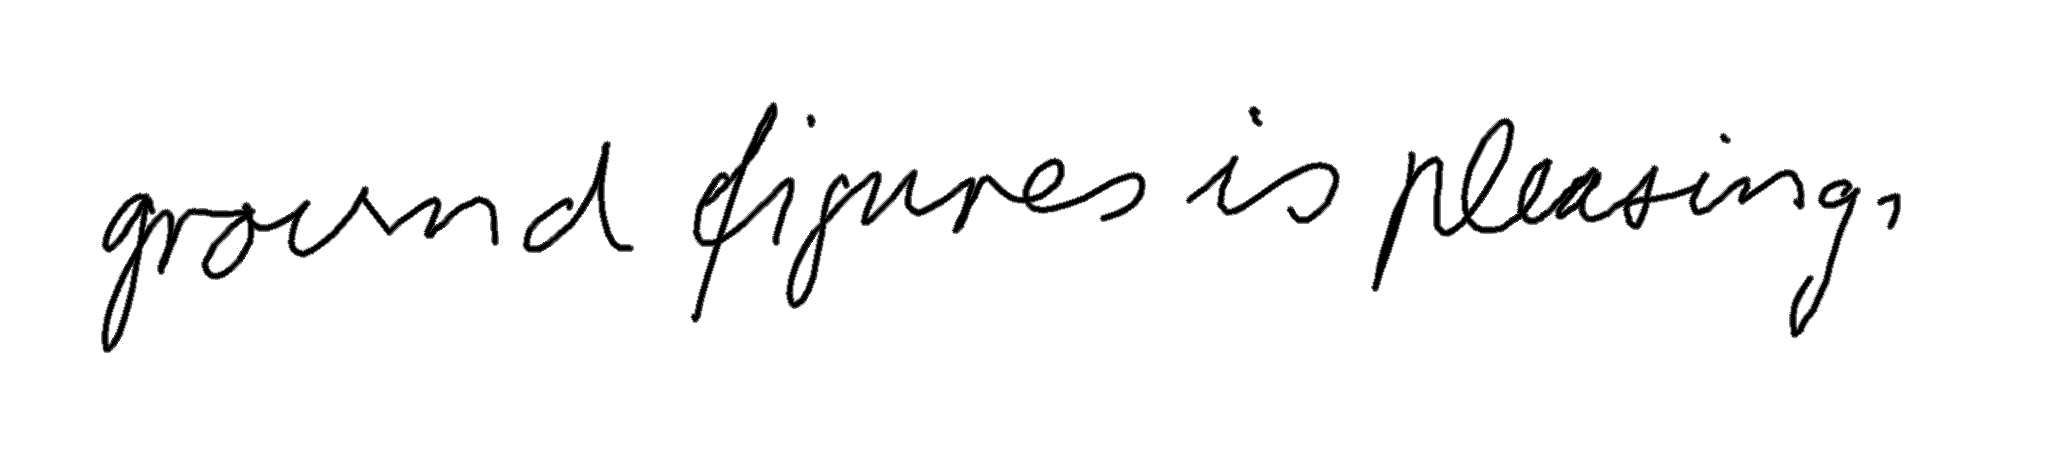 ground figures is pleasing,